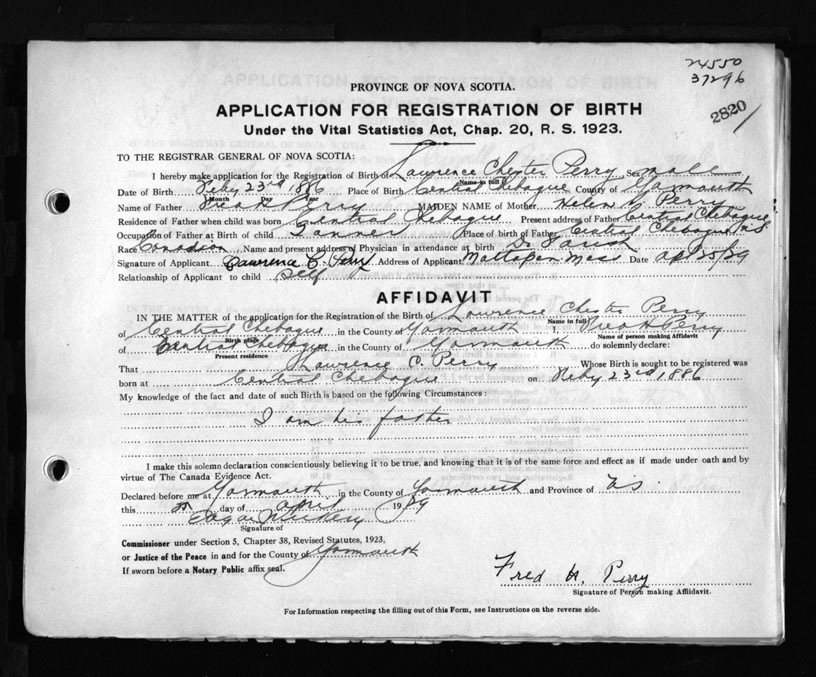 24550
37296
2820
PROVINCE OF NOVA SCOTIA.
APPLICATION FOR REGISTRATION OF BIRTH
Under the Vital Statistics Act, Chap. 20, R. S. 1923.
TO THE REGISTRAR GENERAL OF NOVA SCOTIA:
I hereby make application for the Registration of Birth of Lawrence Chester Perry Sex male
Name in full
Date of Birth Feby 23rd 1886 Place of Birth Central Chebogue County of Yarmouth
Month Day Year
Name of Father Perry MAIDEN NAME of Mother Helen Perry
Residence of Father when child was born Central Chebogue Present address of Father Central Chebogue
Occupation of Father at Birth of child Place of birth of Father Central Chebogue N.S.
Race Canadian Name and present address of Physician in attendance at birth Dr
Signature of Applicant Lawrence C. Perry Address of Applicant Mattapan Mass Date Apl 25/29
Relationship of Applicant to child self
AFFIDAVIT
IN THE MATTER of the application for Registration of the Birth of Lawrence Chester Perry
Name in full
of Central Chebogue in the County of Yarmouth I, Fred H Perry
Birth place Name of person making Affidavit
of Central Chebogue in the County of Yarmouth do solemnly declare:
Present residence
That Lawrence C. Perry Whose Birth is sought to be registered was
born at Central Chebogue on Feby 23rd 1886
My knowledge of the fact and date of such Birth is based on the following Circumstances:
I am his father
I make this solemn declaration conscientiously believing it to be true, and knowing that it is of the same force and effect as if made under oath and by
virtue of The Canada Evidence Act.
Declared before me at Yarmouth in the County of Yarmouth and Province of N.S.
this day of April 1929
Signature of
Commissioner under Section 5, Chapter 38, Revised Statutes, 1923,
or Justice of the Peace in and for the County of Yarmouth
If sworn before a Notary Public affix seal.
Fred H. Perry
Signature of Person making Affidavit.
For Information respecting the filling out of this Form, see Instructions on the reverse side.